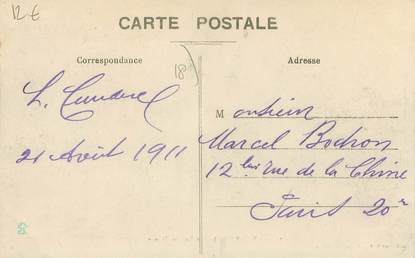 12 €
CARTE POSTALE
Correspondance
Adresse
18
21 Août 1911
Monsieur
Marcel Bodron
12 bis rue de la Chine
Paris 20e